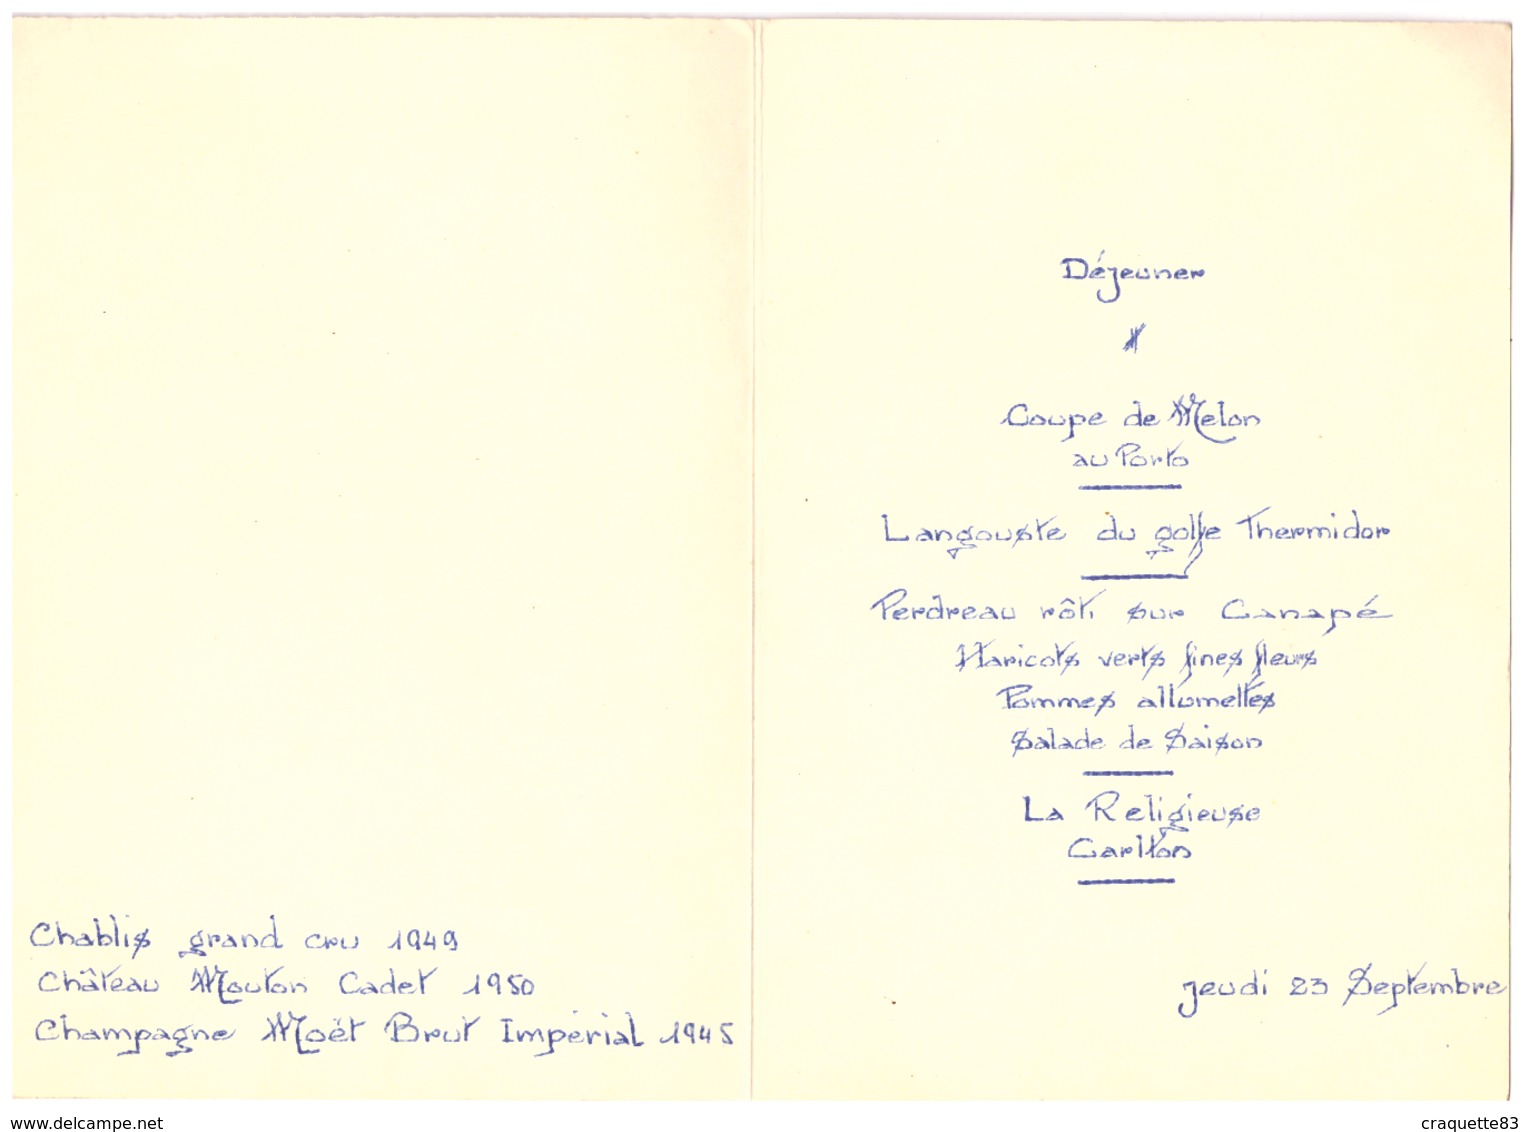 Chablis grand cru 1949
Château Mouton Cadet 1950
Champagne Moët Brut Impérial 1945
Déjeuner
Coupe de Melon
au Porto
Langouste du golfe Thermidor
Perdreau rôti sur Canapé
Haricots verts fines fleurs
Pommes allumettes
Salade de Saison
La Religieuse
Carlton
jeudi 23 Septembre
https://www.delcampe.net
craquette83